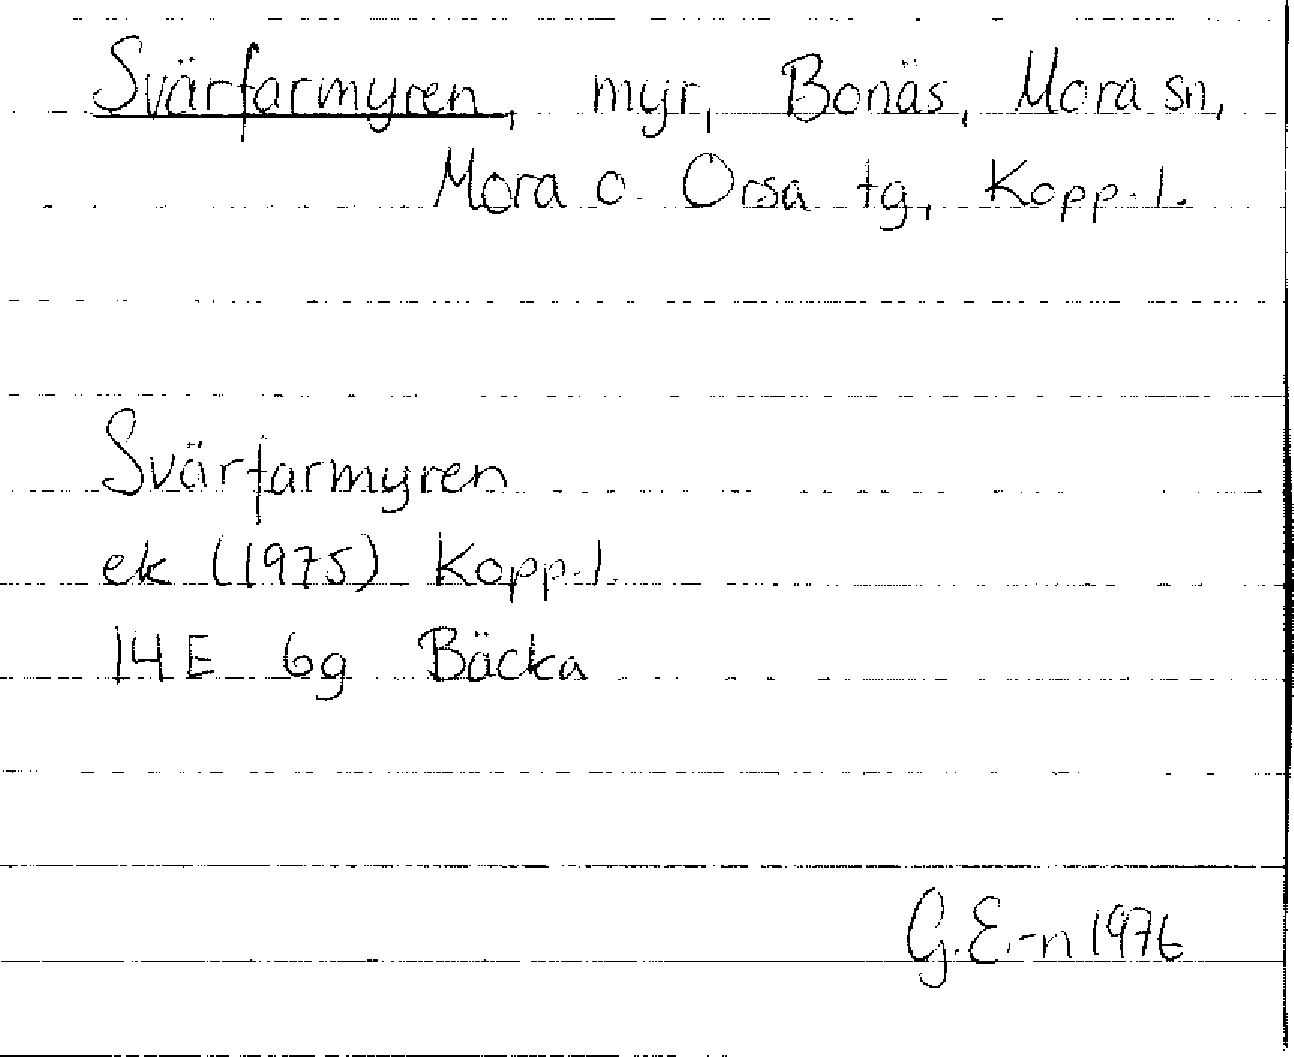 Svärfarmyren, myr, Bonäs, Mora sn,
Mora o. Orsa tg, Kopp. l.
Svärfarmyren
ek (1975) Kopp. l.
14E 6g Bäcka
G.E.-n 1976